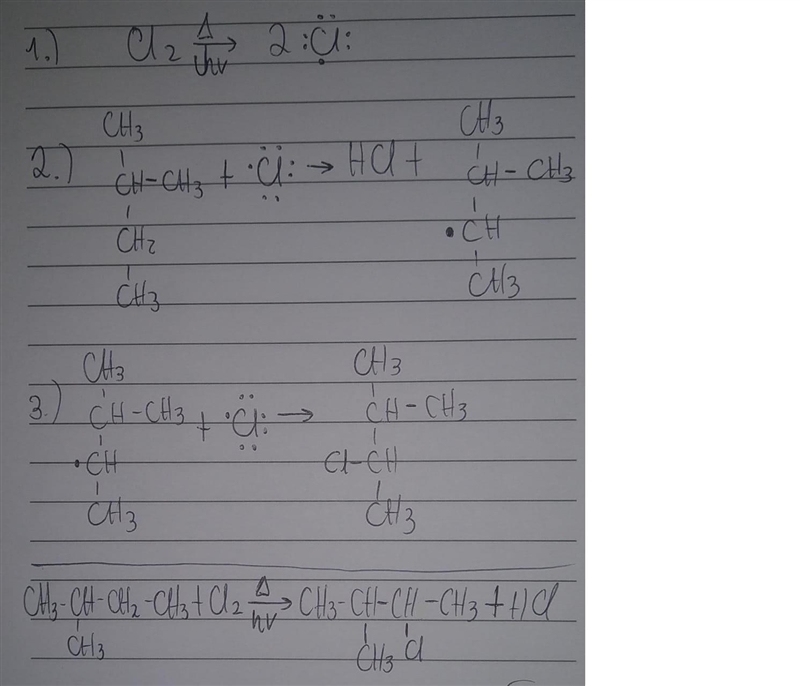 1.) Cl2 Δ/hν → 2 :C̈l:
CH3 CH3
2.) CH-CH3 + ·C̈l: → HCl + CH-CH3
CH2 •CH
CH3 CH3
CH3 CH3
3.) CH-CH3 + ·C̈l: → CH-CH3
•CH Cl-CH
CH3 CH3
CH3-CH-CH2-CH3+Cl2 Δ/hν → CH3-CH-CH-CH3+HCl
CH3 CH3 Cl